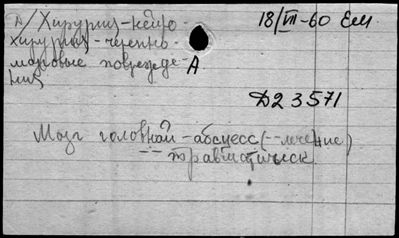 А/Хирургия-нейро-
18/VII-60 Ем
хирургия-черепно-
мозговые поврежде-А
ния
Д23571
Мозг головной-абсцесс(--лечение)
травматическ